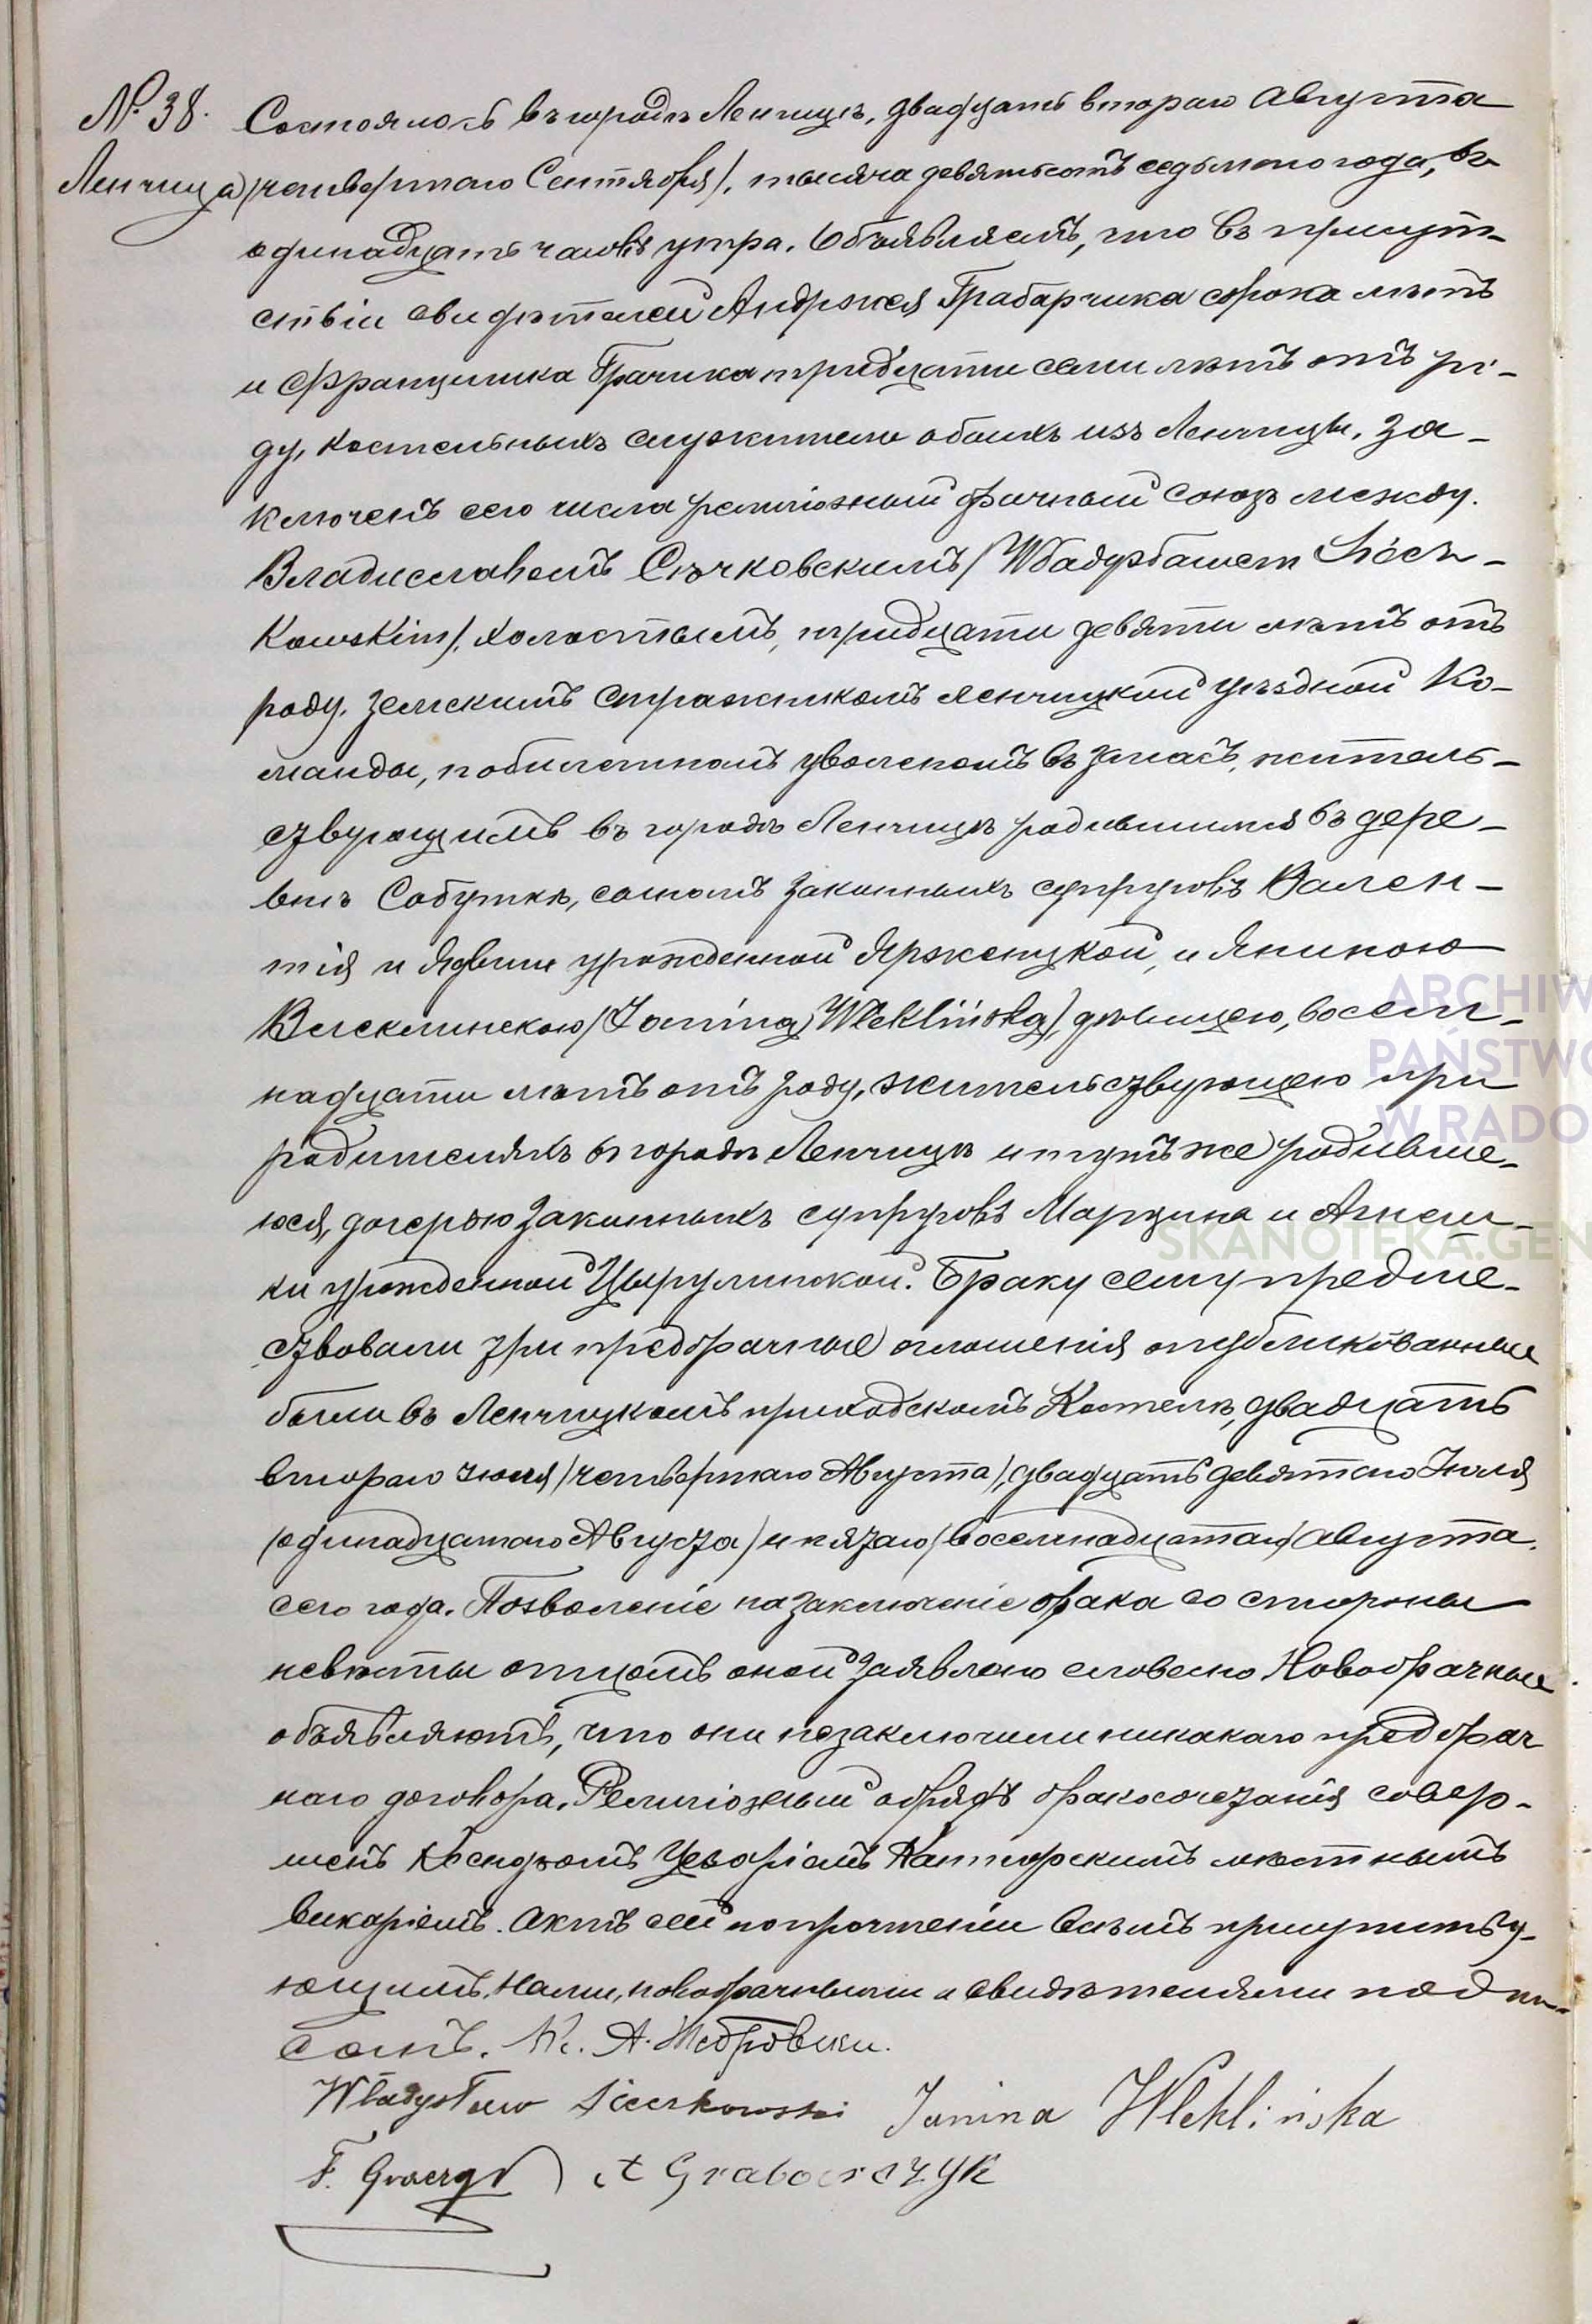 № 38. Состоялось въ городѣ Ленчицѣ, двадцать втораго Августа
Ленчица (четвертаго Сентября), тысяча девятьсотъ седьмого года, въ
одинадцать часовъ утра. Объявляемъ, что въ присут-
ствіи свидѣтелей Андржея Грабарчика сорока лѣтъ
и Францишка Грачика тридцати семи лѣтъ отъ ро-
ду, костельныхъ служителей обоихъ изъ Ленчицы, за-
ключенъ сего числа религіозный брачный союзъ между
Владиславомъ Сѣчковскимъ (Władysławem Sieczkowskim), холостымъ, тридцати девяти лѣтъ отъ
роду, земскимъ стражникомъ ленчицкой уѣздной Ко-
манды, по билетномъ уволеномъ въ запасъ, житель-
ствующимъ въ городѣ Ленчицѣ родившимся въ дере-
внѣ Собуткѣ, сыномъ законныхъ супруговъ Вален-
тія и Ядвиги урожденной Яржеицкой, и Яниною
Влеклинскою (Janiną Wleklińską), дѣвицею, восем-
надцати лѣтъ отъ роду, жительствующею при
родителяхъ въ городѣ Ленчицѣ и тутъ же родивше-
юся, дочерью законныхъ супруговъ Марцина и Агнеш-
ки урожденной Цырулинской. Браку сему предше-
ствовали три предбрачные оглашенія опубликованные
были въ Ленчицкомъ приходскомъ Костелѣ, двадцать
втораго Іюля (четвертаго Августа), двадцать девятаго Іюля
(одинадцатаго Августа) и пятаго (восемнадцатаго) Августа
сего года. Позволеніе на заключеніе брака со стороны
невѣсты отцомъ оной заявлено словесно Новобрачные
объявляютъ, что они незаключили никакаго предбрач
наго договора. Религіозный обрядъ бракосочетанія совер-
шенъ Ксендзомъ Цезаріемъ Канторскимъ мѣстнымъ
викаріемъ. Актъ сей по прочтеніи всѣмъ присутству-
ющимъ, Нами, новобрачными и свидѣтелями подпи-
санъ. Кс. А.
Władysław Sieczkowski Janina Wleklińska
F. A Grabarczyk